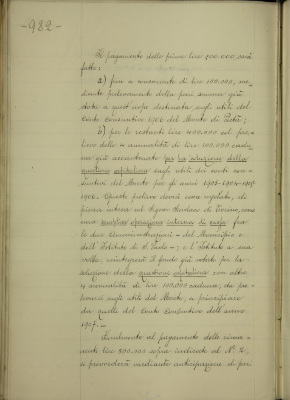 -982-
Il pagamento delle prime lire 500.000, sarà
fatto:
a) fino a concorrenza di lire 100.000, me-
diante prelevamento della pari somma già
stata a quest'uopo destinata sugli utili del
Conto Consuntivo 1906 del Monte di Pietà;
b) per le restanti lire 400.000 col pre-
lievo delle 4 annualità di lire 100.000 cadau-
na già accantonate per la soluzione della
questione ospitaliera sugli utili dei conti con-
suntivi del Monte per gli anni 1903-1904-1905-
1906. Questo prelievo dovrà venir regolato, di
piena intesa col Signor Sindaco di Torino, come
una semplice operazione interna di cassa fra
le due Amministrazioni - del Municipio e
dell'Istituto di S. Paolo -; e l'Istituto a sua
volta, reintegrerà il fondo già votato per la
soluzione della questione ospitaliera con altre
4 annualità di lire 100.000 cadauna, da pre-
levarsi sugli utili del Monte, a principiare
da quelli del Conto Consuntivo dell'anno
1907.-
Finalmente al pagamento delle rima-
nenti lire 500.000 sopra indicate al N. 2,
si provvederà mediante anticipazione di pari